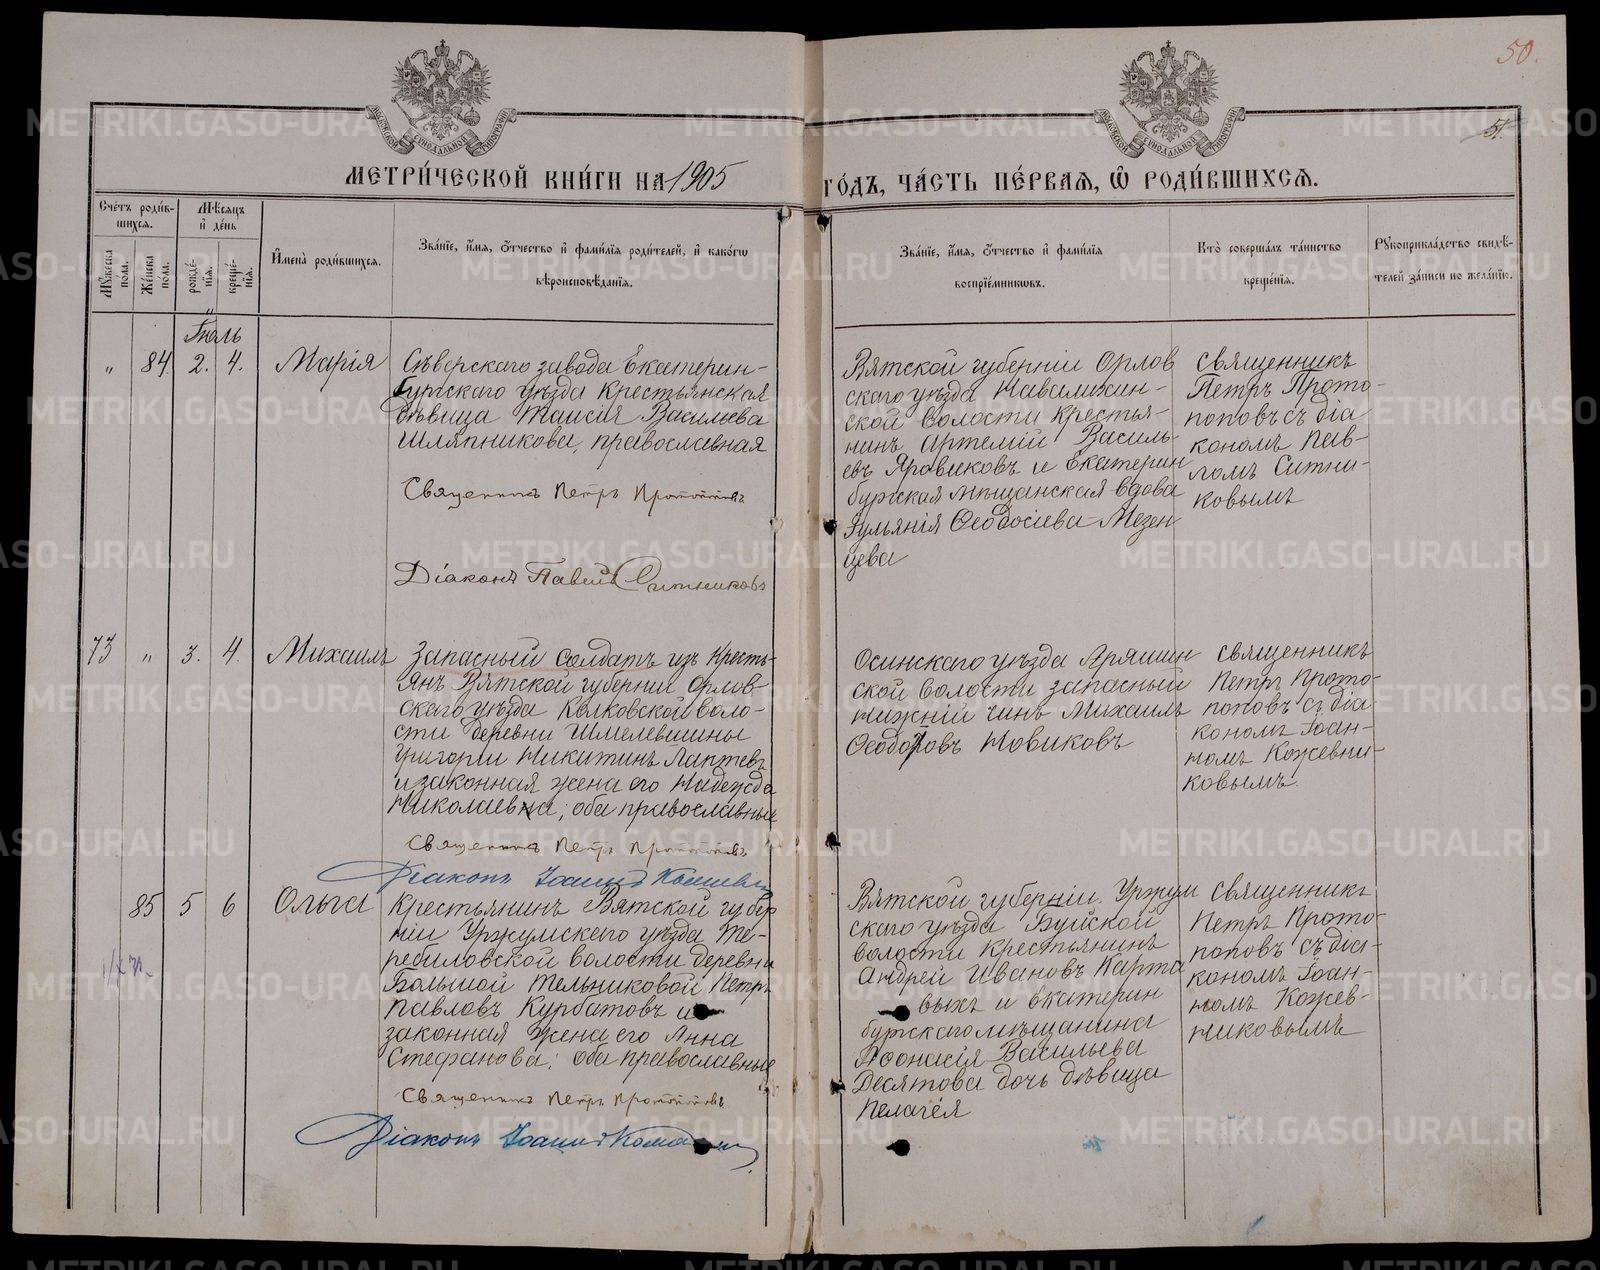 50.
51.
МЕТРИ́ЧЕСКОЙ КНИ́ГИ НА 1905 ГО́ДЪ, ЧА́СТЬ ПЕ́РВАЯ, Ѡ РОДИ́ВШИХСЯ.
Сче́тъ роди́в-
шихся.
Мѣ́сяцъ
и҆ де́нь
Мꙋ́жеска
по́ла.
Же́нска
по́ла.
рожде́-
нїя.
креще́-
нїя.
И҆мена̀ роди́вшихся.
Зва́нїе, и҆́мя, ѻ҆́тчество и҆ фами́лїя роди́телей, и҆ како́гѡ
вѣроисповѣ́данїя.
Зва́нїе, и҆́мя, ѻ҆́тчество и҆ фами́лїя
воспрїе́мникѡвъ.
Кто̀ соверша́лъ та́инство
креще́нїя.
Рꙋкоприкла́дство свидѣ́-
телей за́писи по жела́нїю.
Іюль
„ 84. 2. 4. Марія
Сѣверскаго завода Екатерин-
бургскаго уѣзда Крестьянская
дѣвица Таисія Васильева
Шляпникова, православная
Священникъ Петръ Протопоповъ
Діаконъ Павелъ Ситниковъ
Вятской губерніи Орлов
скаго уѣзда
ской волости Крестья-
нинъ Артемій Василь-
евъ Яравиковъ и Екатерин
бургская мѣщанская вдова
Іульянія Ѳеодосіева Мезен
цева
Священникъ
Петръ Прото-
поповъ съ діа
кономъ Пав-
ломъ Ситни-
ковымъ
73 „ 3. 4. Михаилъ
Запасный солдатъ изъ Кресть-
янъ Вятской губерніи Орлов-
скаго уѣзда Колковской воло-
сти деревни Шмелевшины
Григорій Никитинъ Лаптевъ
и законная жена его Надежда
Николаевна; оба православные
Священникъ Петръ Протопоповъ
Діаконъ Іоаннъ
Осинскаго уѣзда Аряшин
ской волости запасный
нижній чинъ Михаилъ
Ѳеодоровъ Новиковъ
Священникъ
Петръ Прото-
поповъ съ діа-
кономъ Іоан-
номъ Кожевни-
ковымъ.
85 5 6 Ольга
Крестьянинъ Вятской губер
ніи Уржумскаго уѣзда Те-
ребиловской волости деревни
Большой Тельниковой Петръ
Павловъ Курбатовъ и
законная жена его Анна
Стефанова; оба православные
Священникъ Петръ Протопоповъ
Діаконъ Іоаннъ
Вятской губерніи. Уржум
скаго уѣзда Буйской
волости Крестьянинъ
Андрей Ивановъ Карта
выхъ и Екатерин
бургскаго мѣщанина
Аѳонасія Васильева
Десятова дочь дѣвица
Пелагея
Священникъ
Петръ Прото-
поповъ съ діа-
кономъ Іоан-
номъ Кожев-
никовымъ
METRIKI.GASO-URAL.RU